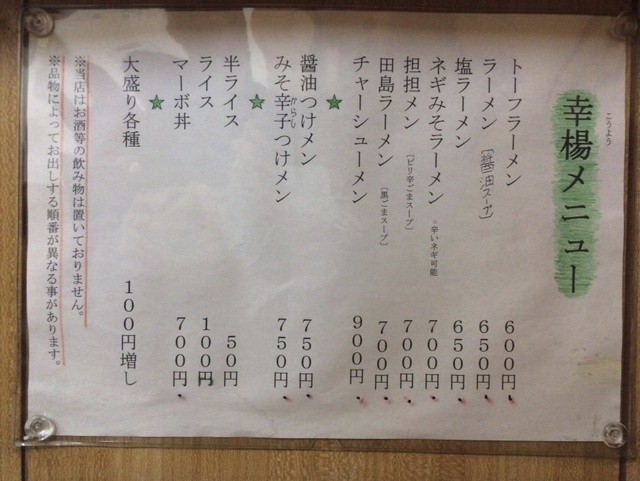 こうよう
幸楊メニュー
トーフラーメン 600円
ラーメン〔醤油スープ〕 650円
塩ラーメン 650円
ネギみそラーメン ※辛いネギ可能 700円
担担メン〔ピリ辛ごまスープ〕 700円
田島ラーメン〔黒ごまスープ〕 700円
チャーシューメン 900円
★
醤油つけメン 750円
からし
みそ辛子つけメン 750円
★
半ライス 50円
ライス 100円
マーボ丼 700円
★
大盛り各種 100円増し
※当店はお酒等の飲み物は置いておりません。
※品物によってお出しする順番が異なる事があります。